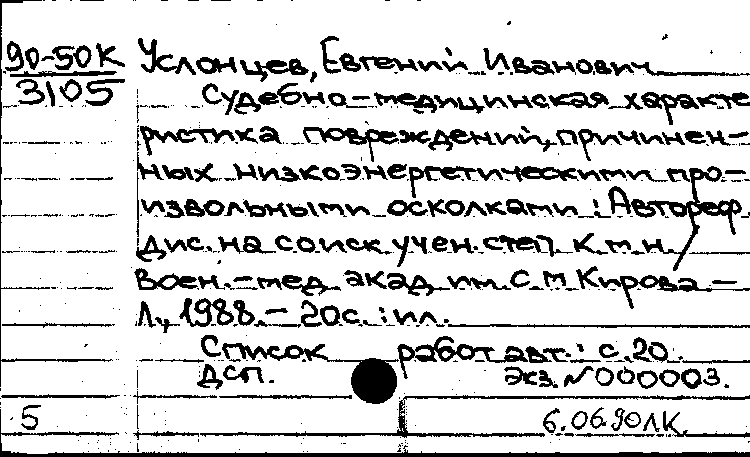 90-50К Услонцев, Евгений Иванович
3105
Судебно-медицинская характе
ристика повреждений, причинен-
ных низкоэнергетическими про-
извольными осколками : Автореф.
дис. на соиск. учен. степ. к.м.н. /
Воен.-мед. акад. им. С.М. Кирова. -
Л., 1988. - 20с. : ил.
Список работ авт.: с. 20.
ДСП. Экз. №000003.
5 6.06.90 ЛК.